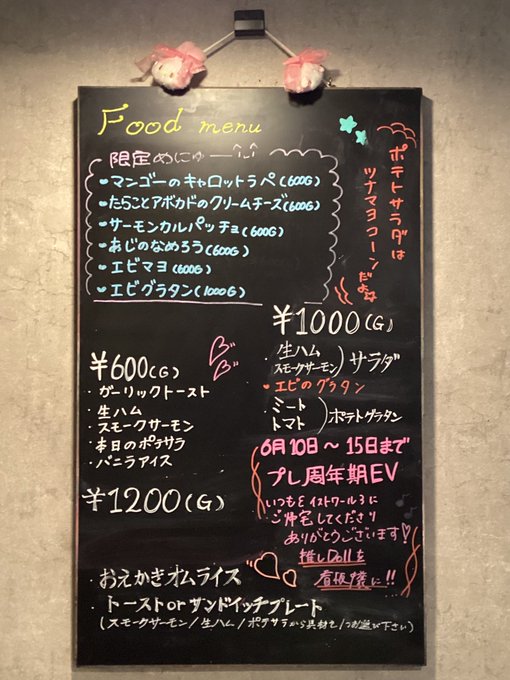 Food menu
限定めにゅー
・マンゴーのキャロットラペ(600G)
・たらことアボカドのクリームチーズ(600G)
・サーモンカルパッチョ(600G)
・あじのなめろう(600G)
・エビマヨ(600G)
・エビグラタン(1000G)
ポテトサラダは
ツナマヨコーン
だよ
¥600(G)
・ガーリックトースト
・生ハム
・スモークサーモン
・本日のポテサラ
・バニラアイス
¥1000(G)
・生ハム
スモークサーモン)サラダ
・エビのグラタン
・ミート
トマト)ポテトグラタン
6月10日〜15日まで
プレ周年期EV
いつもミストワール3に
ご帰宅してくださり
ありがとうございます♡
推しDollを
看板嬢に!!
¥1200(G)
・おえかきオムライス
・トーストorサンドイッチプレート
(スモークサーモン/生ハム/ポテサラから具材を1つお選び下さい)